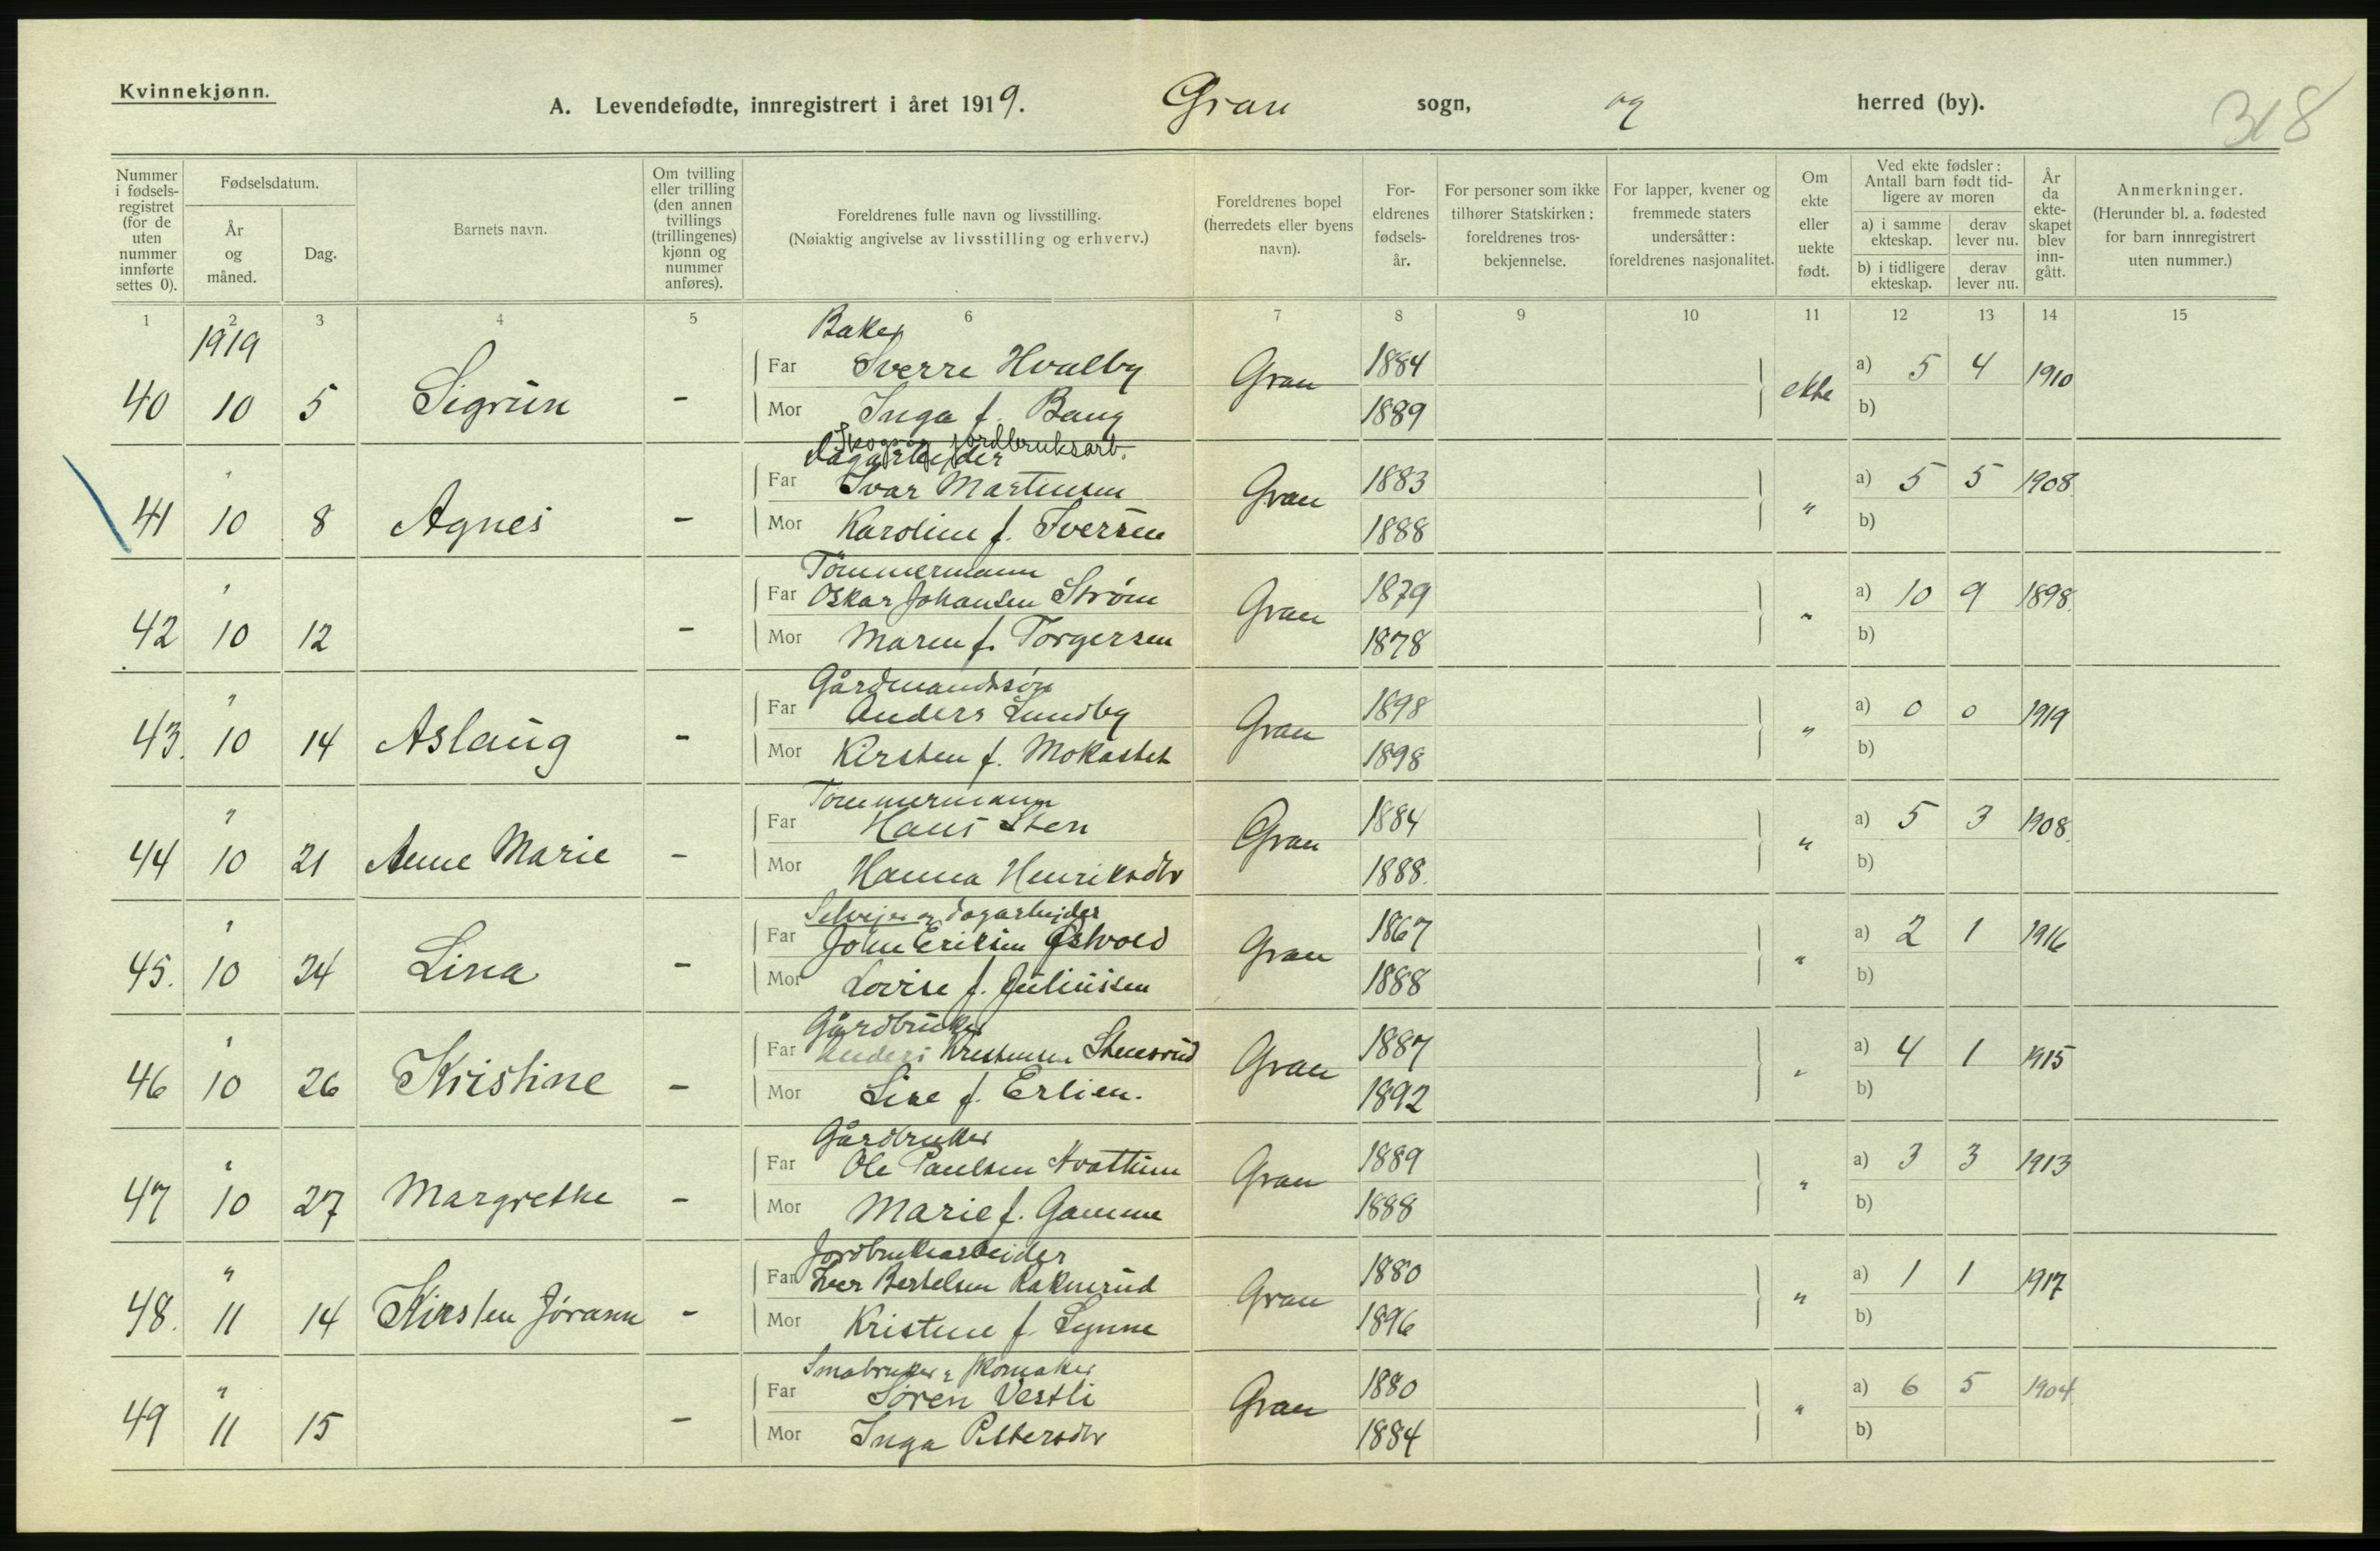 Kvinnekjønn.
A. Levendefødte, innregistrert i året 1919. Gran sogn, og herred (by). 318
Nummer i fødselsregistret (for de uten nummer innførte settes 0). Fødselsdatum. År og måned. Dag. Barnets navn. Om tvilling eller trilling (den annen tvillings (trillingenes) kjønn og nummer anføres). Foreldrenes fulle navn og livsstilling. (Nøiaktig angivelse av livsstilling og erhverv.) Foreldrenes bopel (herredets eller byens navn). Foreldrenes fødselsår. For personer som ikke tilhører Statskirken: foreldrenes trosbekjennelse. For lapper, kvener og fremmede staters undersåtter: foreldrenes nasjonalitet. Om ekte eller uekte født. Ved ekte fødsler: Antall barn født tidligere av moren a) i samme ekteskap. derav lever nu. b) i tidligere ekteskap. derav lever nu. År da ekteskapet blev inngått. Anmerkninger. (Herunder bl. a. fødested for barn innregistrert uten nummer.)
1 2 3 4 5 6 7 8 9 10 11 12 13 14 15
1919 Baker
Far Sverre Hvalby 1884 a) 5 4 1910
40 10 5 Sigrun - Gran ekte
Mor Inga f. Bang 1889 b)
Skogs og jordbruksarb.
Dagarbejder
Far Ivar Martinsen 1883 a) 5 5 1908
41 " 10 8 Agnes - Gran "
Mor Karoline f. Iversen 1888 b)
Tømmermann
Far Oskar Johansen Strøm 1879 a) 10 9 1898
42 " 10 12 - Gran "
Mor Maren f. Torgersen 1878 b)
Gårdmandssøn
Far Anders Lundby 1898 a) 0 0 1919
43. " 10 14 Aslaug - Gran "
Mor Kirsten f. Mokastet 1898 b)
Tømmermann
Far Hans Sten 1884 a) 5 3 1908
44 " 10 21 Anne Marie - Gran "
Mor Hanna Henriksdtr 1888. b)
Selvejer og dagarbejder
Far John Eriksen Østvold 1867 a) 2 1 1916
45. " 10 24 Lina - Gran "
Mor Lovise f. Juliussen 1888 b)
Gårdbruker
Far Anders Kristensen Stensrud 1887 a) 4 1 1915
46 " 10 26 Kristine - Gran "
Mor Line f. Erlien. 1892 b)
Gårdbruker
Far Ole Paulsen Hvattum 1889 a) 3 3 1913
47 " 10 27 Margrethe - Gran "
Mor Marie f. Gamme 1888 b)
Jordbruksarbeider
Far Iver Bertelsen Raknerud 1880 a) 1 1 1917
48. " 11 14 Kirsten Jørann - Gran "
Mor Kristine f. Lynne 1896 b)
Småbruker & skomaker
Far Søren Vestli 1880 a) 6 5 1904
49 " 11 15 - Gran "
Mor Inga Pettersdtr 1884 b)